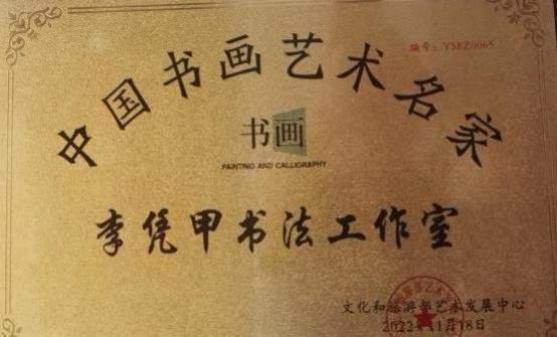 中国书画艺术名家
编号：YSFZ0065
书画
PAINTING AND CALLIGRAPHY
李凭甲书法工作室
文化和旅游部艺术发展中心
2022年11月18日